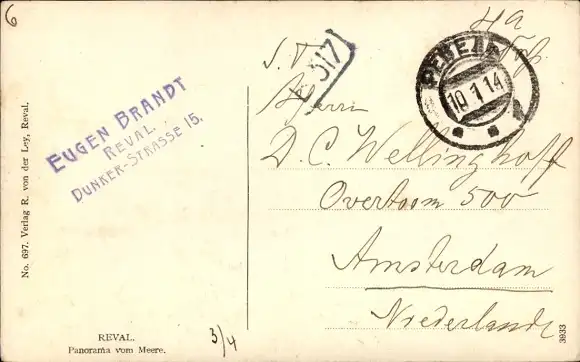 6
EUGEN BRANDT
REVAL.
DUNKER-STRASSE 15.
No. 697. Verlag R. von der Ley, Reval.
REVAL.
Panorama vom Meere.
3/4
517
РЕВЕЛЬ
10 1 14
Herrn
D. C. Wellinghoff
Overtoom 500
Amsterdam
Niederlande
3933